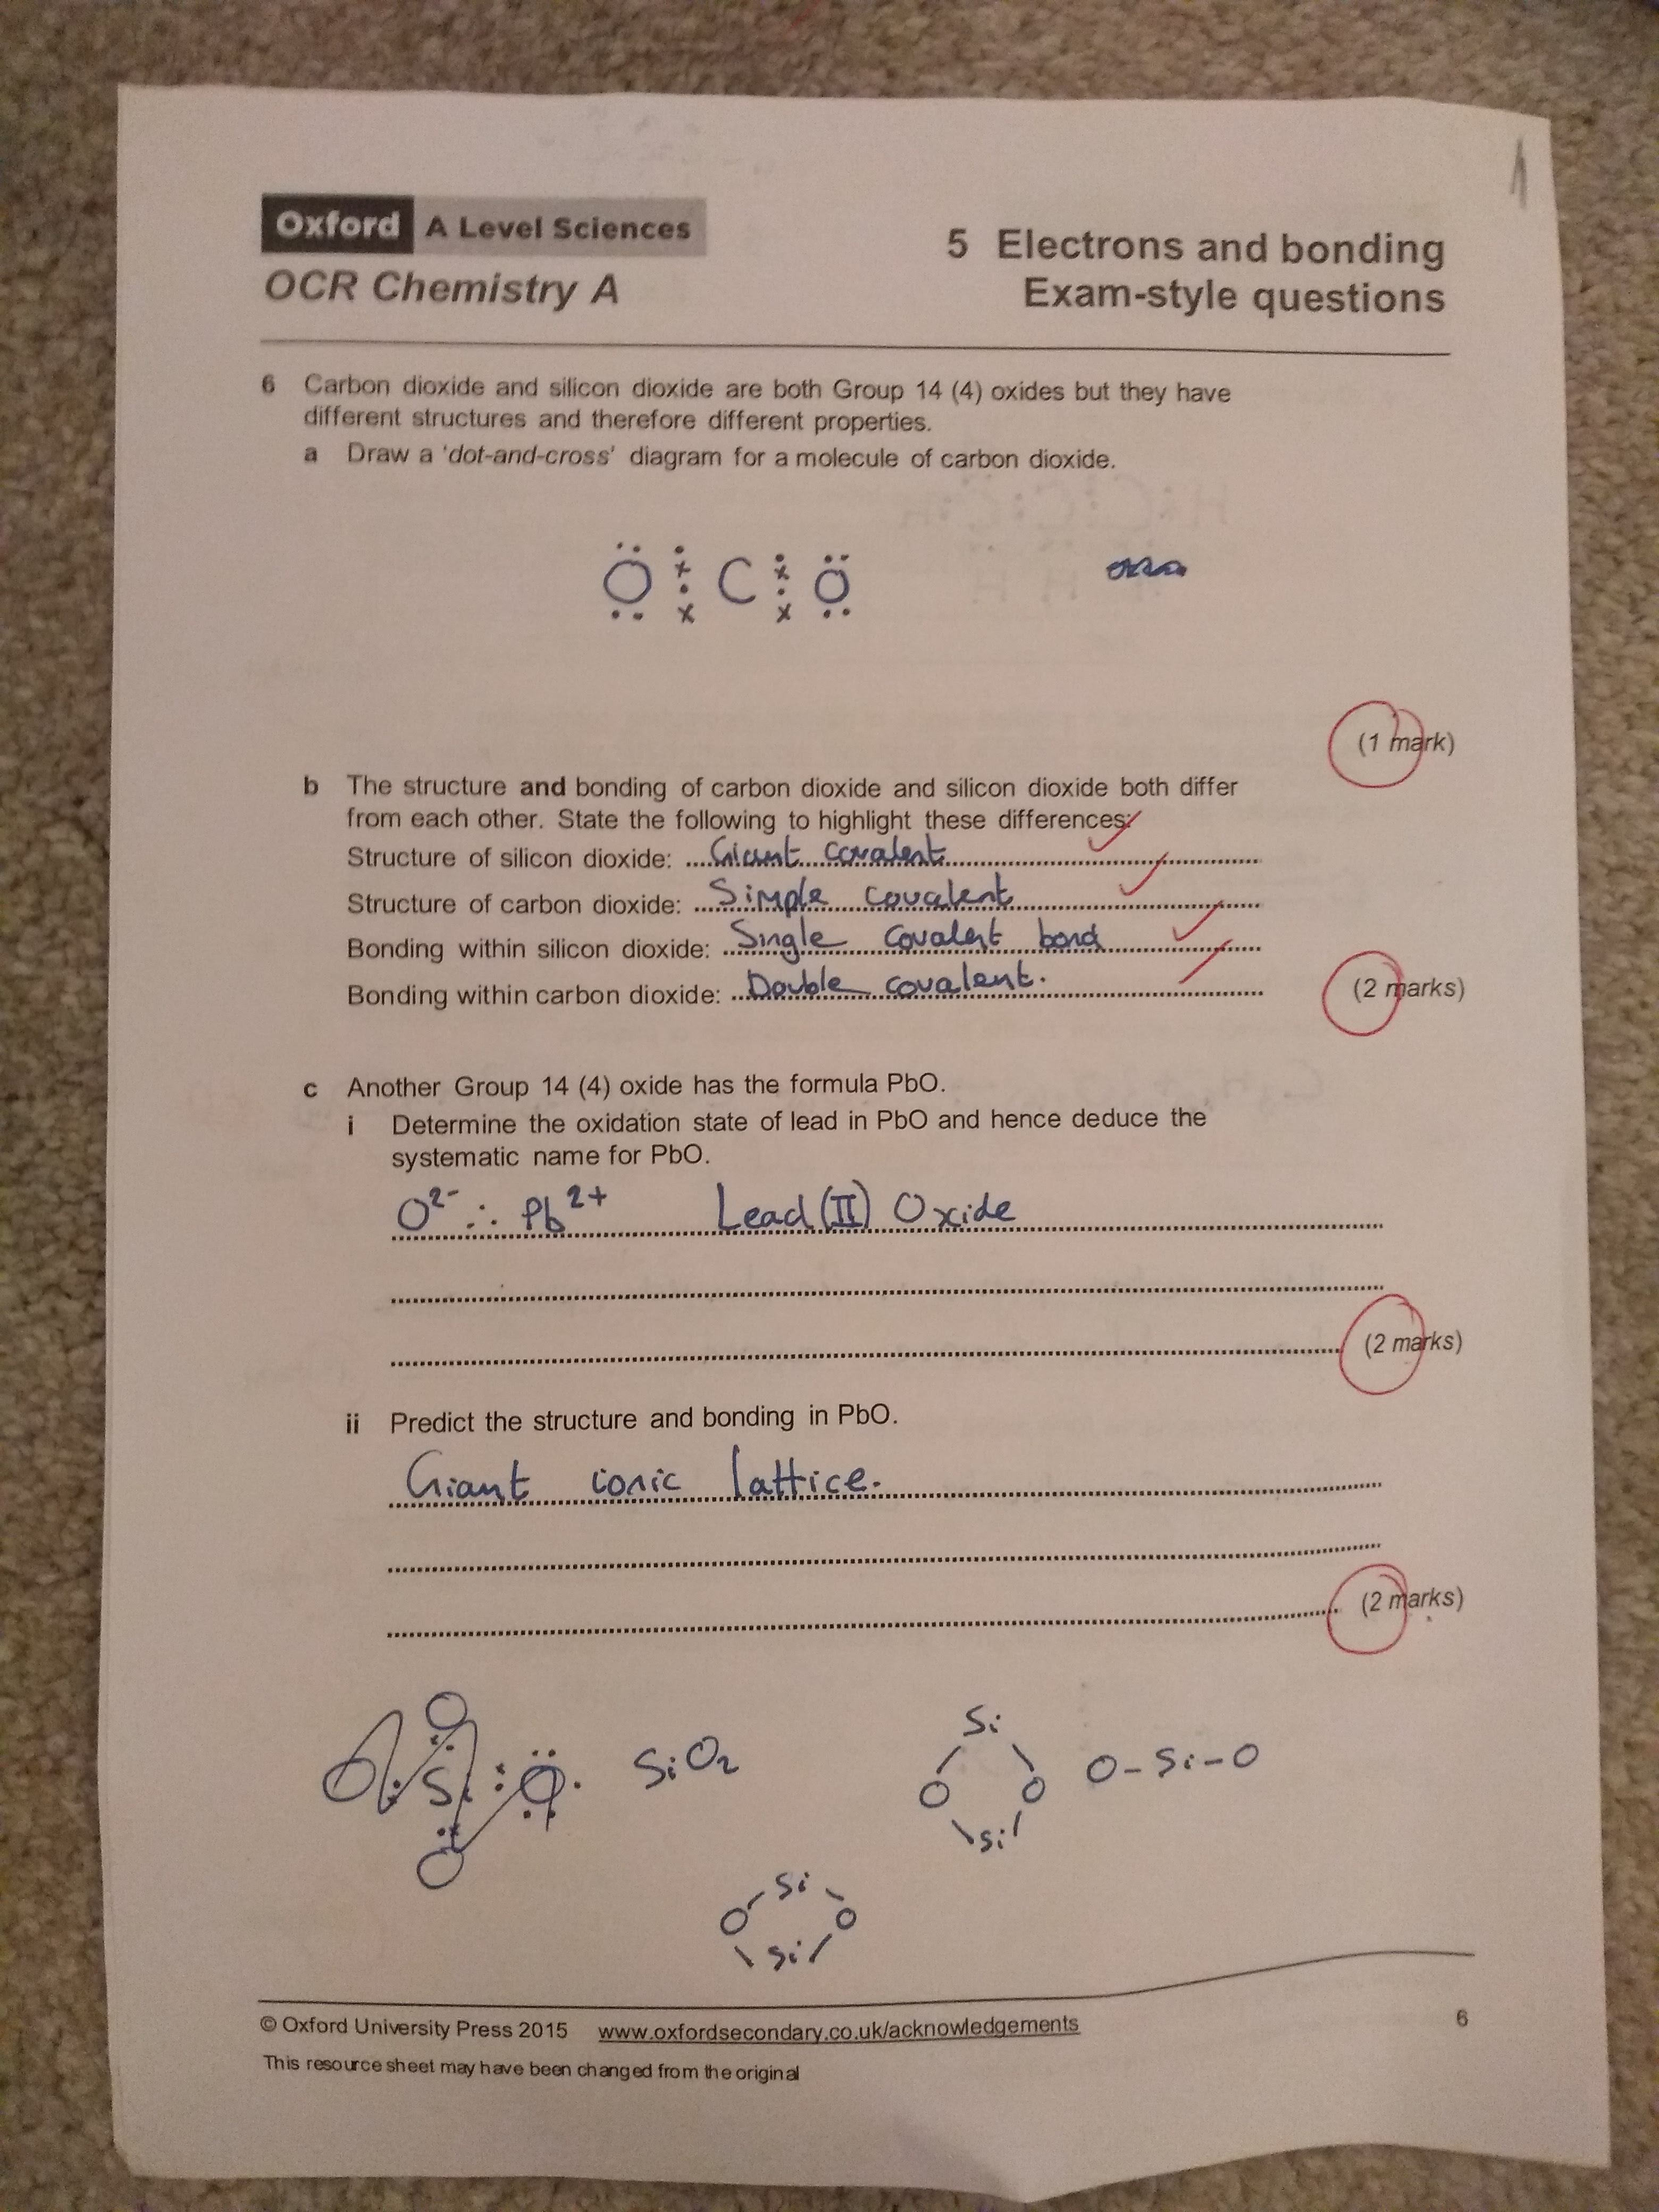 Oxford A Level Sciences
OCR Chemistry A
5 Electrons and bonding
Exam-style questions
6 Carbon dioxide and silicon dioxide are both Group 14 (4) oxides but they have
different structures and therefore different properties.
a Draw a 'dot-and-cross' diagram for a molecule of carbon dioxide.
O C O
(1 mark)
b The structure and bonding of carbon dioxide and silicon dioxide both differ
from each other. State the following to highlight these differences:
Structure of silicon dioxide: Giant covalent
Structure of carbon dioxide: Simple covalent
Bonding within silicon dioxide: Single covalent bond
Bonding within carbon dioxide: Double covalent.
(2 marks)
c Another Group 14 (4) oxide has the formula PbO.
i Determine the oxidation state of lead in PbO and hence deduce the
systematic name for PbO.
O²⁻ ∴ Pb²⁺ Lead (II) Oxide
(2 marks)
ii Predict the structure and bonding in PbO.
Giant ionic lattice.
(2 marks)
O
O Si O SiO₂
O
Si
O O
Si
O-Si-O
Si
O O
Si
© Oxford University Press 2015 www.oxfordsecondary.co.uk/acknowledgements
6
This resource sheet may have been changed from the original